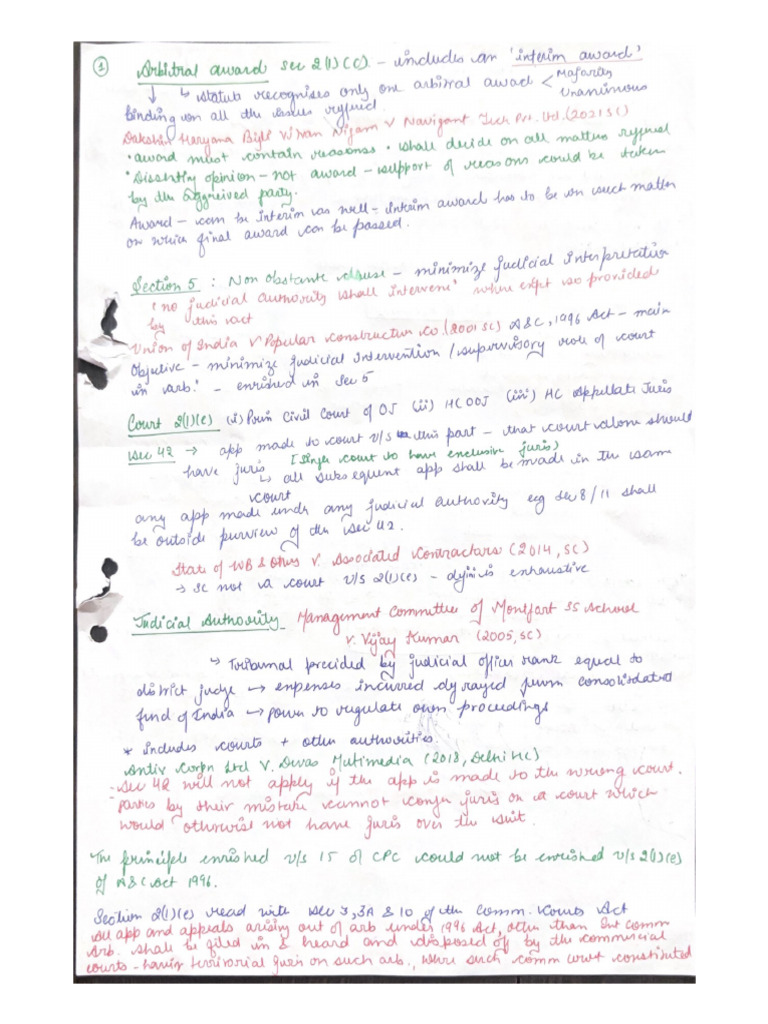 ① Arbitral award sec 2(1)(c) - includes an 'interim award'
↳ statute recognises only one arbitral award < Majority
Unanimous
binding on all the issues referred
Dakshin Haryana Bijli Vitran Nigam V Navigant Tech Pvt. Ltd. (2021 SC)
• award must contain reasons • shall decide on all matters referred
• Dissenting opinion - not award - support of reasons could be taken
by the aggreived party.
Award - can be interim as well - interim award has to be on such matter
on which final award can be passed.
Section 5 : Non obstante clause - minimize judicial interpretation
'no judicial authority shall intervene' where expt so provided
by this act
Union of India V Popular Construction Co. (2001 SC) A&C, 1996 Act - main
Objective - minimize judicial intervention / supervisory role of court
in arb. - enrished in sec 5
Court 2(1)(e) (i) Prin Civil Court of OJ (ii) HC OOJ (iii) HC appellate Juris
Sec 42 → app made to court u/s this part - that court alone should
have juris [Single court to have exclusive juris)
↳ all subsequent app shall be made in the same
court
any app made under any judicial authority eg sec 8/11 shall
be outside purview of the sec 42.
State of WB & Others V. Associated Contractors (2014, SC)
→ SC not a court u/s 2(1)(e) - defini is exhaustive
Judicial Authority - Management Committee of Montfort SS School
V. Vijay Kumar (2005, SC)
↳ Tribunal precided by judicial officer rank equal to
district judge → expenses incurred defrayed from consolidated
fund of India → power to regulate own proceedings
* includes courts + other authorities.
Antrix Corpn Ltd V. Devas Mutimedia (2018, Delhi HC)
- Sec 42 will not apply if the app is made to the wrong court.
Parties by their mistake cannot confer juris on a court which
would otherwise not have juris over the suit.
The principle enrished u/s 15 of CPC could not be enrished u/s 2(1)(e)
of A&C Act 1996.
Section 2(1)(e) read with sec 3, 3A & 10 of the Comm. Courts Act
All app and appeals arising out of arb under 1996 Act, other than Int comm
Arb. shall be filed in & heard and disposed of by the commercial
courts - having terrirorial juris on such arb., where such comm court constituted